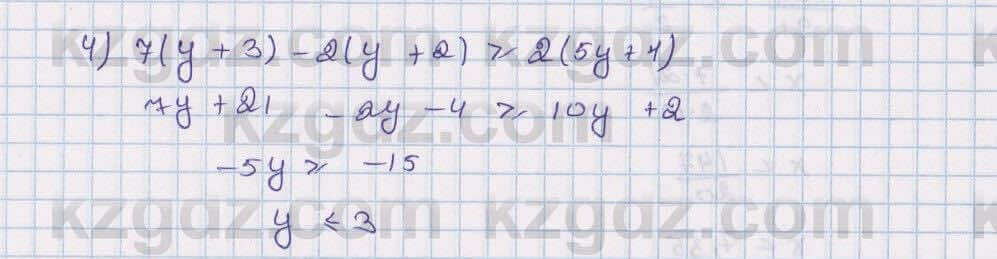 4) 7(y + 3) - 2(y + 2) ≥ 2(5y + 1)
7y + 21 - 2y - 4 ≥ 10y + 2
-5y ≥ -15
y ≤ 3
kzgdz.com
kzgdz.com
kzgdz.com